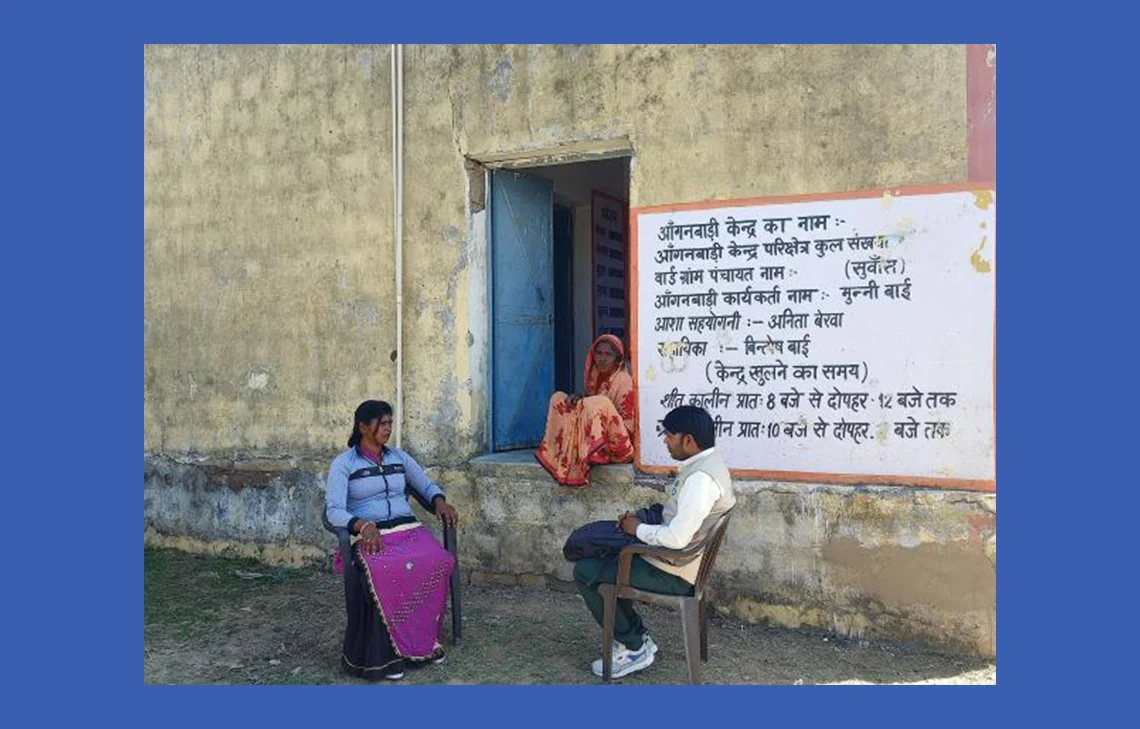 आँगनबाड़ी केन्द्र का नाम :-
आँगनबाड़ी केन्द्र परिक्षेत्र कुल संख्या
वार्ड ग्रांम पंचायत नाम :- (सुवाँस)
आँगनबाड़ी कार्यकर्ता नाम :- मुन्नी बाई
आशा सहयोगनी :- अनिता बेरवा
:- बाई
(केन्द्र खुलने का समय)
शीत कालीन प्रातः 8 बजे से दोपहर 12 बजे तक
प्रातः 10 बजे से दोपहर. बजे तक